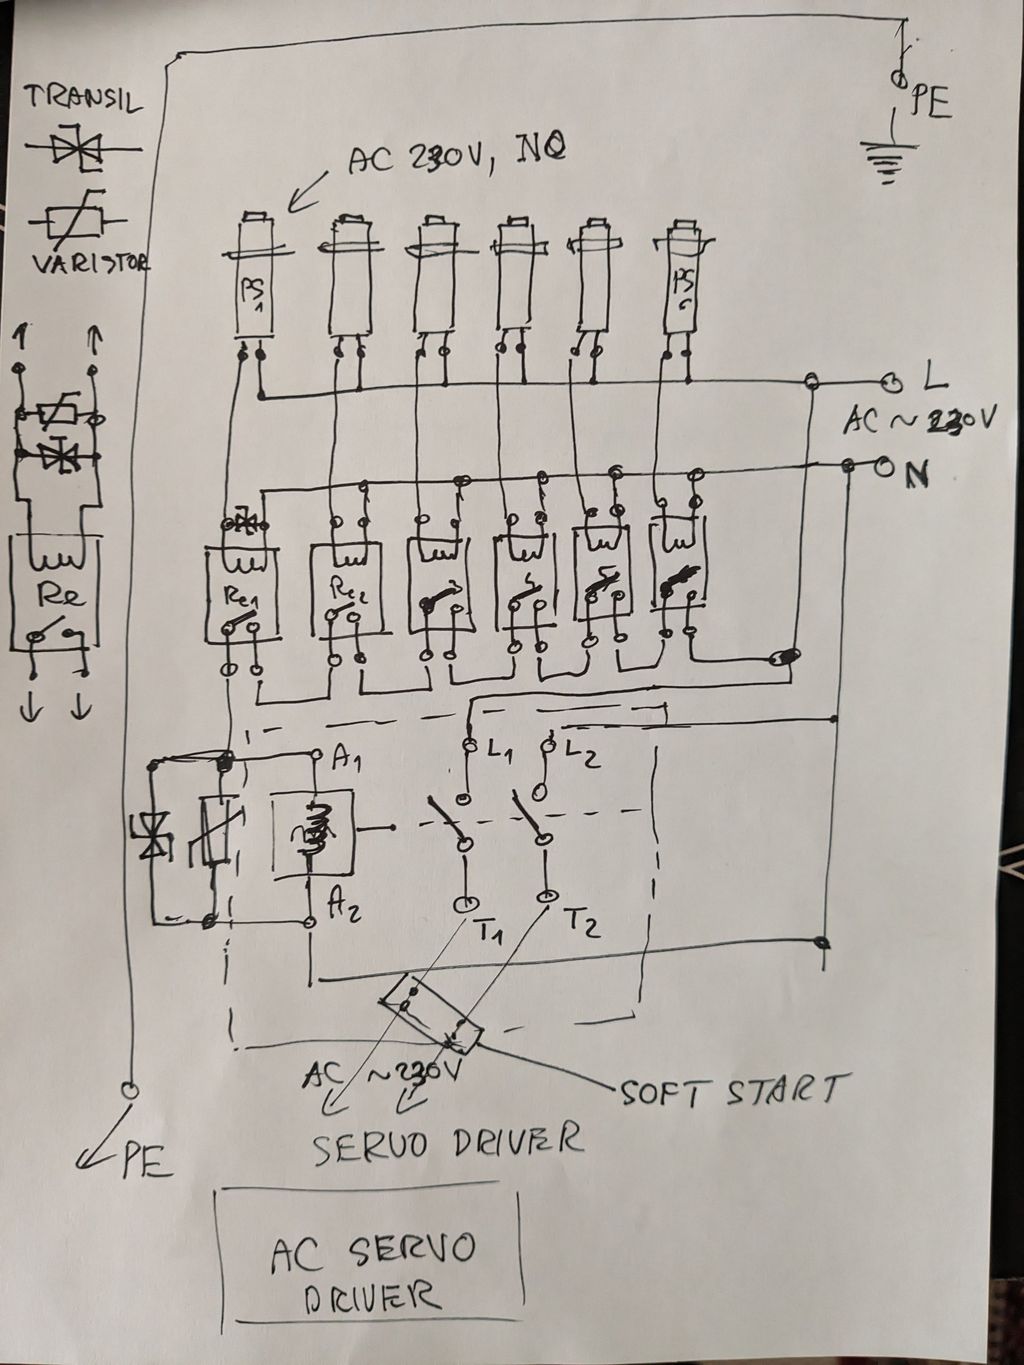 TRANSIL
PE
AC 230V, NO
VARISTOR
PS1
PS6
L
AC ~ 230V
N
Re
Re1
Re2
3
A1
L1
L2
A2
T1
T2
AC ~230V
SOFT START
SERVO DRIVER
PE
AC SERVO
DRIVER